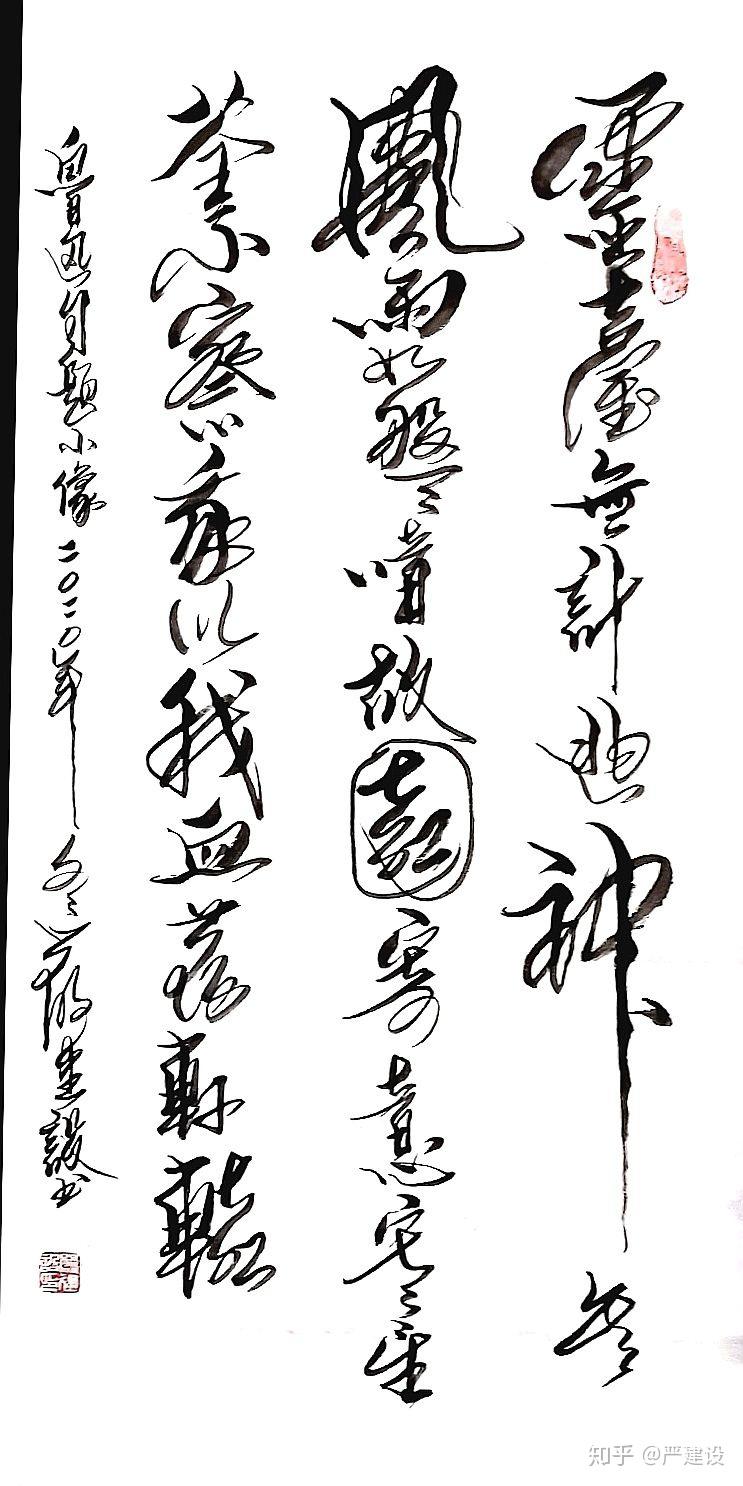 靈臺無計逃神矢
風雨如磐暗故園寄意寒星
荃不察我以我血薦軒轅
魯迅自題小像二〇二〇年冬嚴建設書
知乎 @严建设